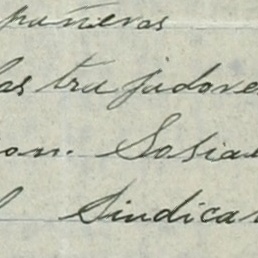 pañeros
las tra jadore
on. Sosia
l Sindica